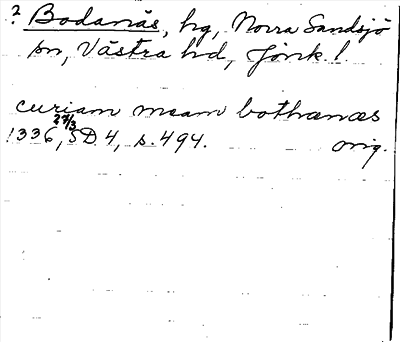 ? Bodanäs, hg, Norra Sandsjö
sn, Västra hd, Jönk l.
curiam meam bothanæs
1336 27/3, SD 4, s. 494. orig.